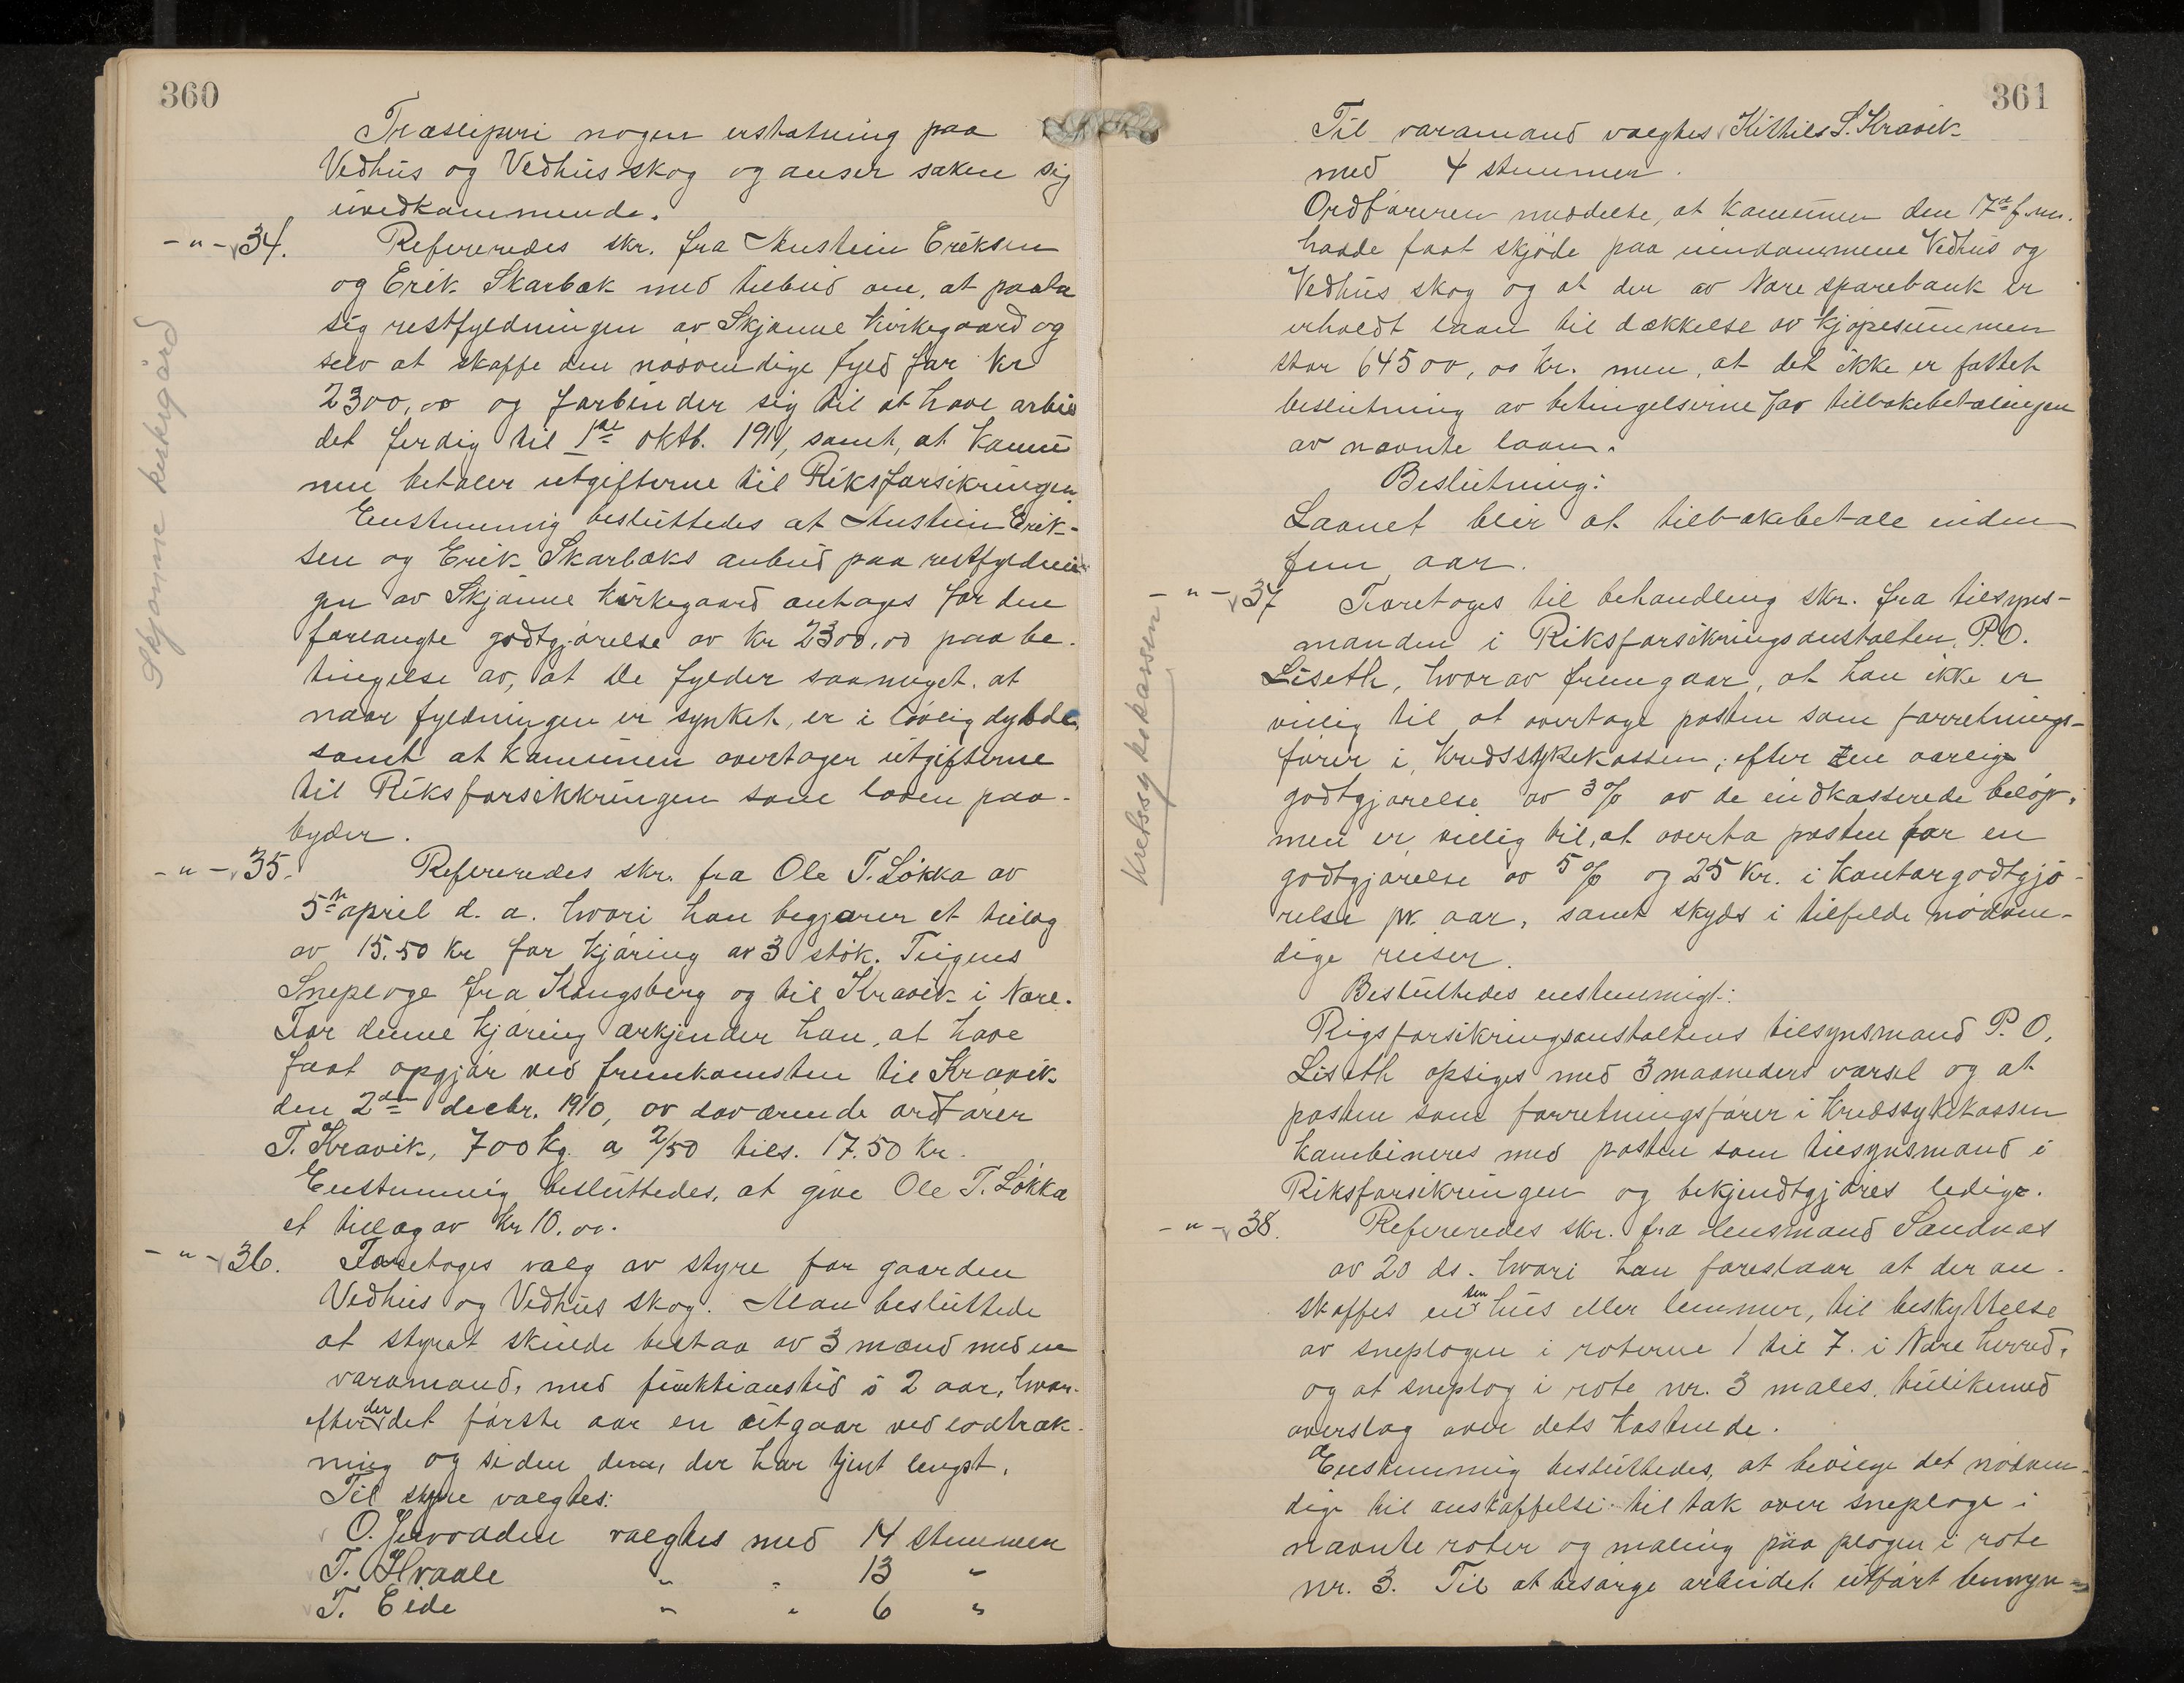 360
Træsliperi nogen erstatning paa
Vedhus og Vedhus skog og anser saken sig
uvedkommende.
Skjønne kirkegård
-"- 34. Refereredes skr. fra Austein Eriksen
og Erik Skarbøk med tilbud om, at paata
sig restfyldningen av Skjønne kirkegaard og
selv at skaffe den nøsvendige fyld for kr
2300,00 og forbinder sig til at have arbei
det ferdig til 1ste oktb. 1914, samt, at kommu
nen betaler utgifterne til Riksforsikringen.
Enstemmig besluttedes at Austein Erik-
sen og Erik Skarbøks anbud paa restfyldnin
gen av Skjønne kirkegaard antages for den
forlangte godtgjørelse av kr 2300,00 paa be-
tingelse av, at de fylder saameget. at
naar fyldningen er synket, er i lovlig dybde,
samt at kommunen overtager utgifterne
til Riksforsikkringen som loven paa-
byder.
-"- 35. Refereredes skr. fra Ole T. Løkka av
5te april d. a. hvori han begjærer et tillæg
av 15.50 kr for kjøring av 3 støk. Teigens
Sneploge fra Kongsberg og til Kravik i Nore.
For denne kjøring ærkjender han, at have
faat opgjør ved fremkomsten til Kravik
den 2den decbr. 1910, av daværende ordfører
T. Kravik, 700 kg. a 2/50 tils. 17.50 kr.
Enstemmig besluttedes, at give Ole T. Løkka
et tillæg av kr 10.00.
-"- 36. Foretoges valg av styre for gaarden
Vedhus og Vedhus skog. Man besluttede
at styret skulde bestaa av 3 mænd med en
varamand, med funktionstid i 2 aar, hvor-
efter der det første aar en utgaar ved lodtræk-
ning og siden den, der har tjent lengst.
Til styre valgtes:
O. Juvodden valgtes med 14 stemmer
T. Hvaale " " 13 "
T. Eide " " 6 "
361
Til varamand valgtes Kittil S. Kravik
med 4 stemmer.
Ordføreren meddelte, at kommunen den 17de f.m.
hadde faat skjøde paa eiendommene Vedhus og
Vedhus skog og at der av Nore sparebank er
erholdt laan til dækkelse av kjøpesummen
stor 64500,00 kr. men, at det ikke er fattet
beslutning av betingelserne for tilbakebetalingen
av nævnte laan.
Beslutning:
Laanet blir at tilbakebetale inden
fem aar.
Kretssykekassen
-"- 37 Foretoges til behandling skr. fra tilsyns-
manden i Riksforsikringsanstalten, P.O.
Liseth, hvorav fremgaar, at han ikke er
villig til at overtage posten som forretnings-
fører i, kredssykekassen, efter en aarlig
godtgjørelse av 3% av de indkasserede beløp,
men er villig til, at overta posten for en
godtgjørelse av 5% og 25 kr. i kontorgodtgjø-
relse pr. aar, samt skyds i tilfelde nødven-
dige reiser.
Besluttedes enstemmigt:
Rigsforsikringsanstaltens tilsynsmand P. O.
Liseth opsiges med 3 maaneders varsel og at
posten som forretningsfører i kredssykekassen
kombineres med posten som tilsynsmand i
Riksforsikringen og bekjendtgjøres ledige.
-"- 38. Refereredes skr. fra lensmand Sandnæs
av 20 ds. hvori han foreslaar at der an-
skaffes en ten hus eller lemmer, til beskyttelse
av sneplogen i roterne 1 til 7. i Nore herred,
og at sneplog i rote nr. 3 males. tillikemed
overslag over dets kostende.
Enstemmig besluttedes, at bevilge det nødven-
dige til anskaffelse til tak over sneploge i
nævnte roter og maling paa plogen i rote
nr. 3. Til at besørge arbeidet utført bemyn-